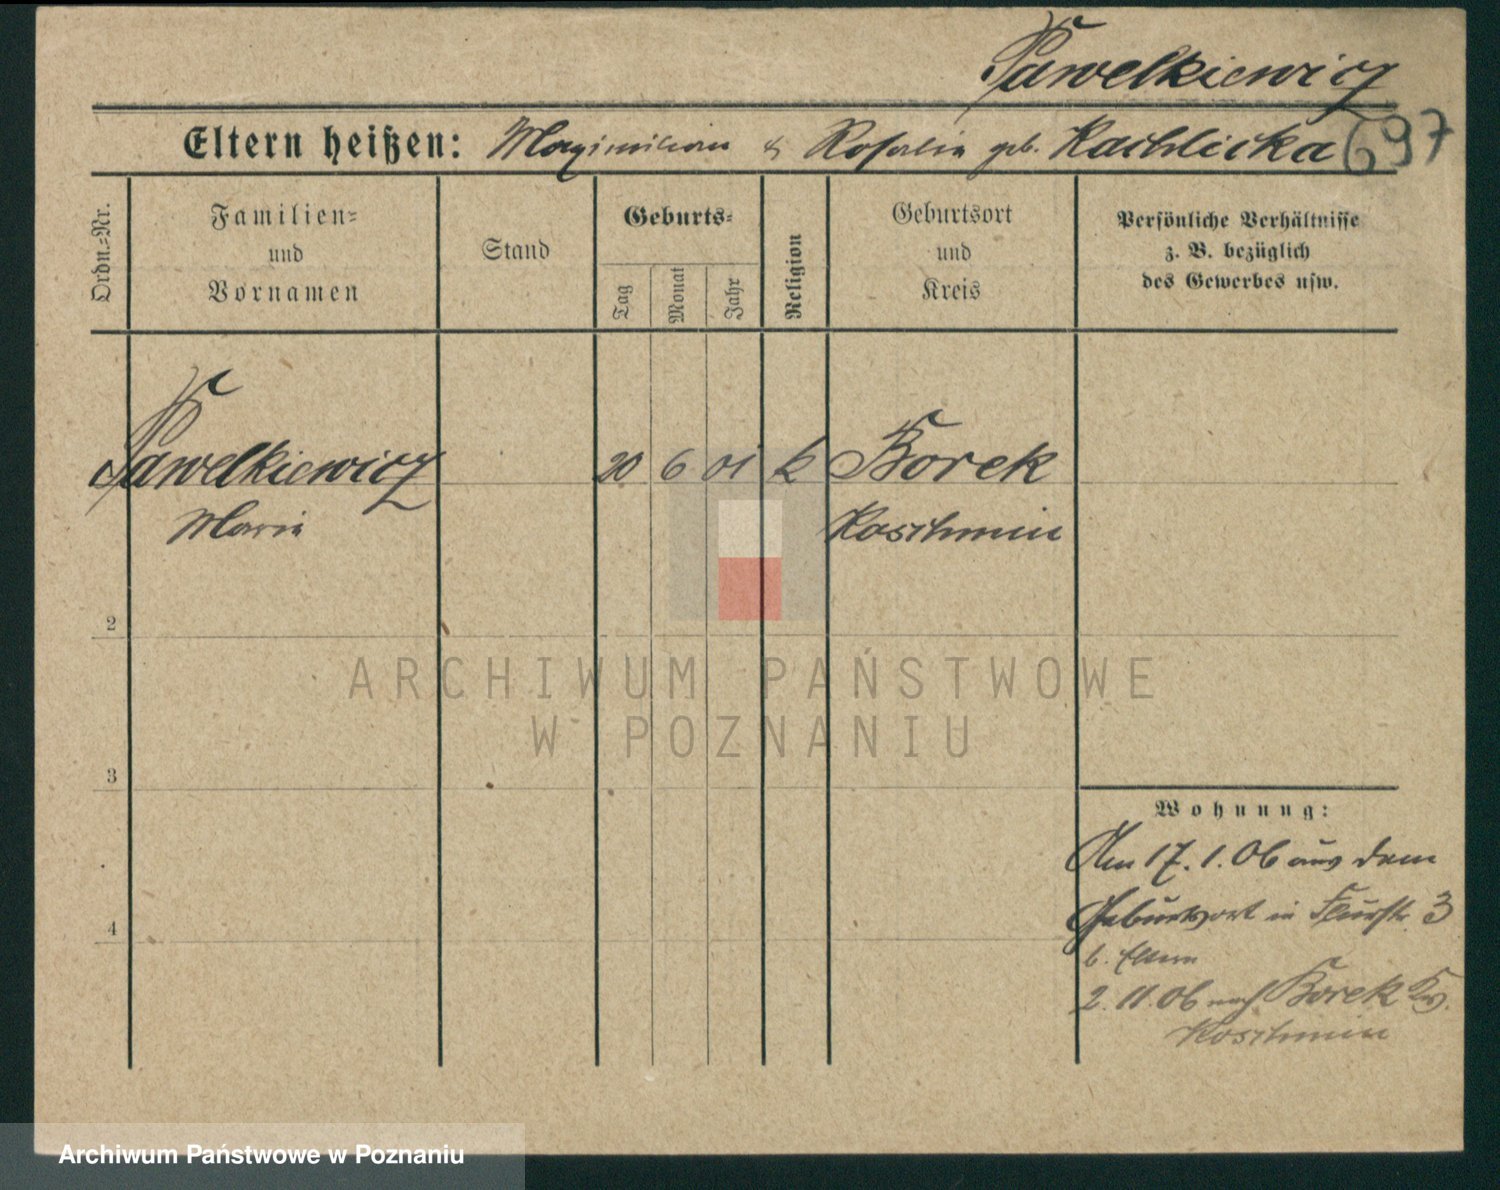 Pawelkiewicz
Eltern heißen: Maximilian & Rosalia geb. Kachlicka
697
Ordn.-Nr.
Familien-
und
Vornamen
Stand
Geburts-
Tag
Monat
Jahr
Religion
Geburtsort
und
Kreis
Persönliche Verhältnisse
z. B. bezüglich
des Gewerbes usw.
Pawelkiewicz 20 6 01 k Borek
Maria Koschmin
2
ARCHIWUM PAŃSTWOWE
W POZNANIU
3
Wohnung:
Am 17.1.06 aus dem
Geburtsort in Flurstr. 3
b. Eltern
4
2.11.06 nach Borek Krs.
Koschmin
Archiwum Państwowe w Poznaniu